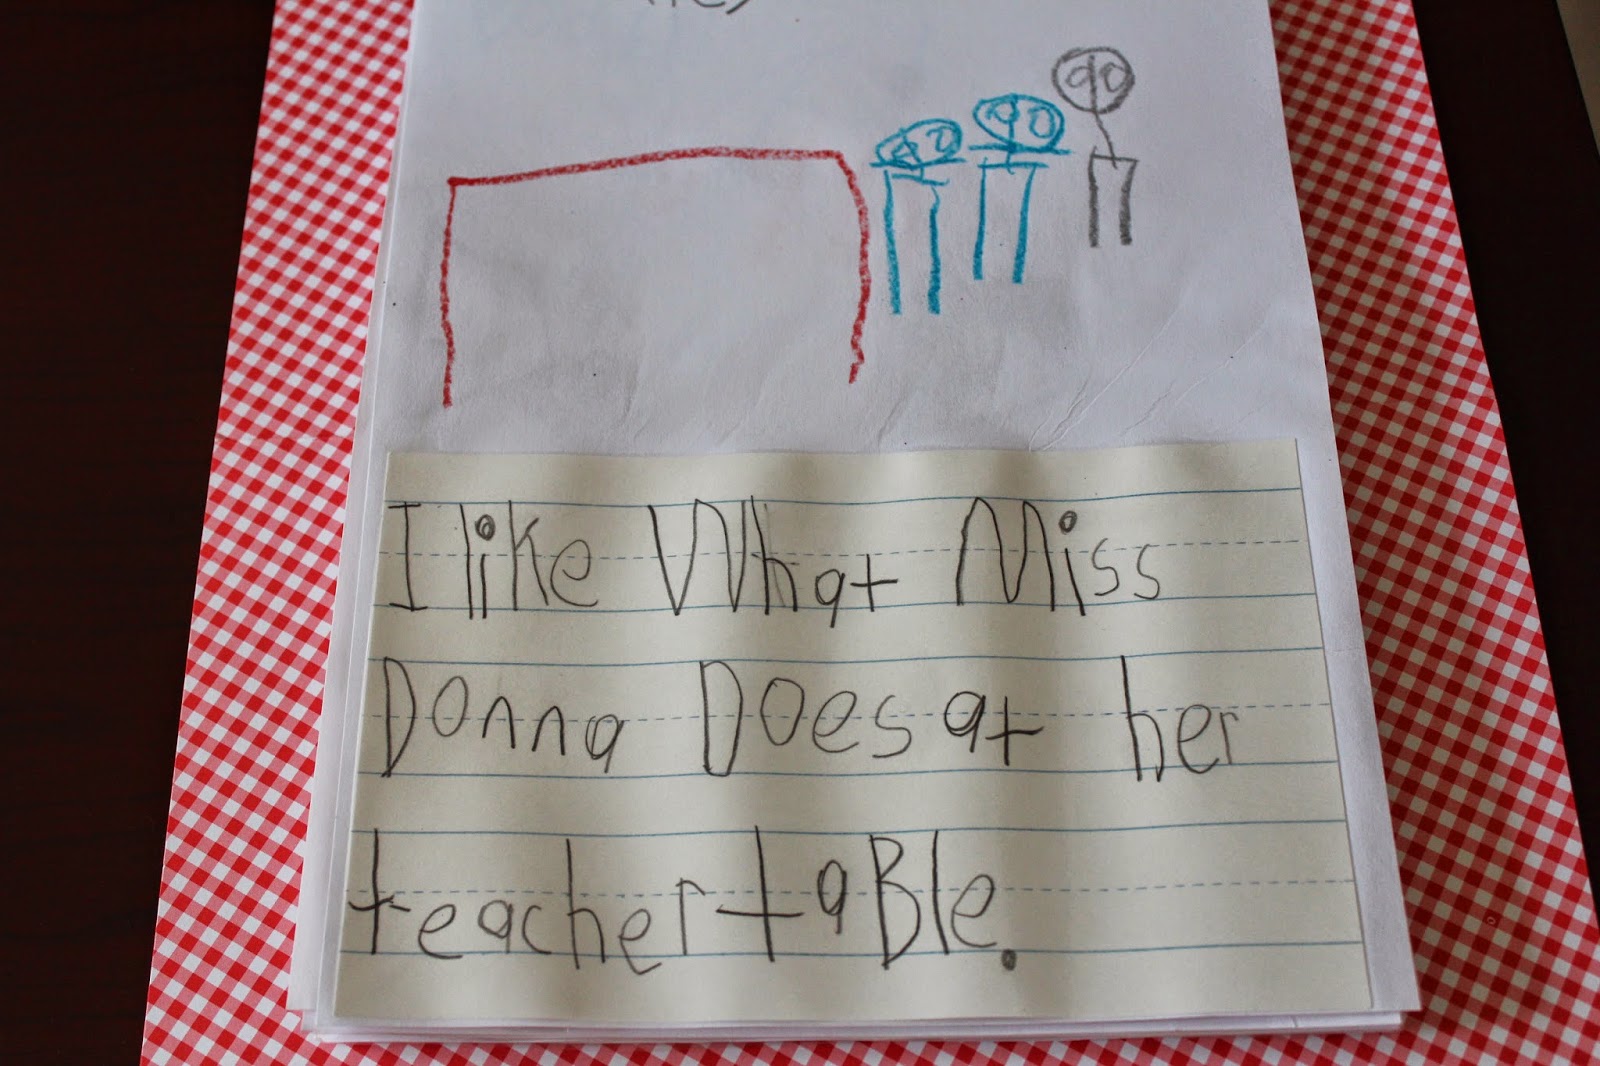 I like What Miss
Donna Does at her
teacher taBle.